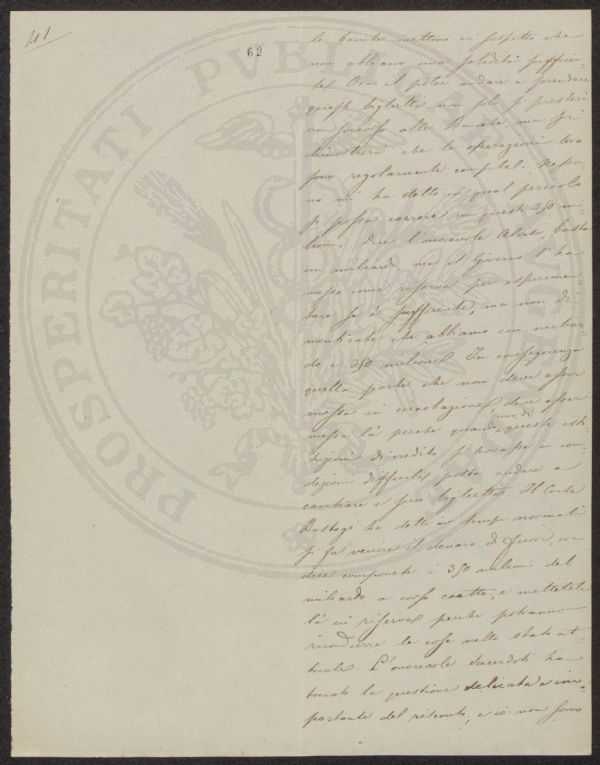 41
62
PROSPERITATI PVBLICAE
le banche mettono in sospetto che
non abbiano una solidità sufficien-
te. Ora il poter andare a prendere
questi biglietti non solo si presterà
un soccorso alle Banche, ma si
dimostrerà che le operazioni loro
sono regolarmente compite. Nessu-
no mi ha detto in qual pericolo
si possa correre con questi 350 mi-
lioni. Dice l'onorevole Alvisi, basta
un miliardo, ma il Governo l'ha
messo come riserva per esperimen-
tare se è sufficiente, ma non di-
menticate che abbiamo un miliar-
do e 350 milioni. In conseguenza
quella parte che non deve esser
messa in circolazione, deve esser
messa là perchè quando una di queste isti-
tuzioni di credito si trovasse in con-
dizioni difficili possa andare a
cambiare i suoi biglietti. Il Conte
Bastogi ha detto in tempi normali
si fa venire il denaro di fuori, io
dico componete i 350 milioni del
miliardo a corso coatto, e metteteli
là in riserva perchè potranno
ricondurre le cose nello stato at-
tuale. L'onorevole Sacerdoti ha
toccato la questione delicata e im-
portante del risconto, e io non sono